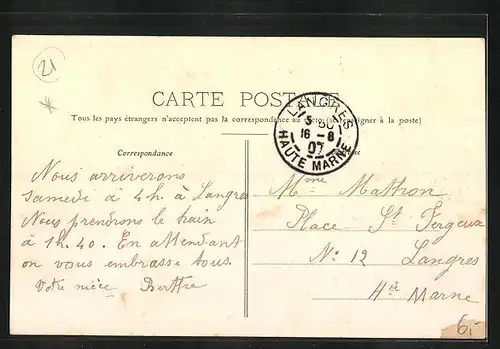 21
CARTE POSTALE
Tous les pays étrangers n'acceptent pas la correspondance au recto (se renseigner à la poste)
LANGRES
16-8
07
HAUTE MARNE
Correspondance
Nous arriverons
samedi à 4h. à Langres
Nous prendrons le train
à 1h.40. En attendant
on vous embrasse tous.
Votre nièce Berthe
Mme Mathon
Place St Fergeux
No 12 Langres
Hte Marne
6,-